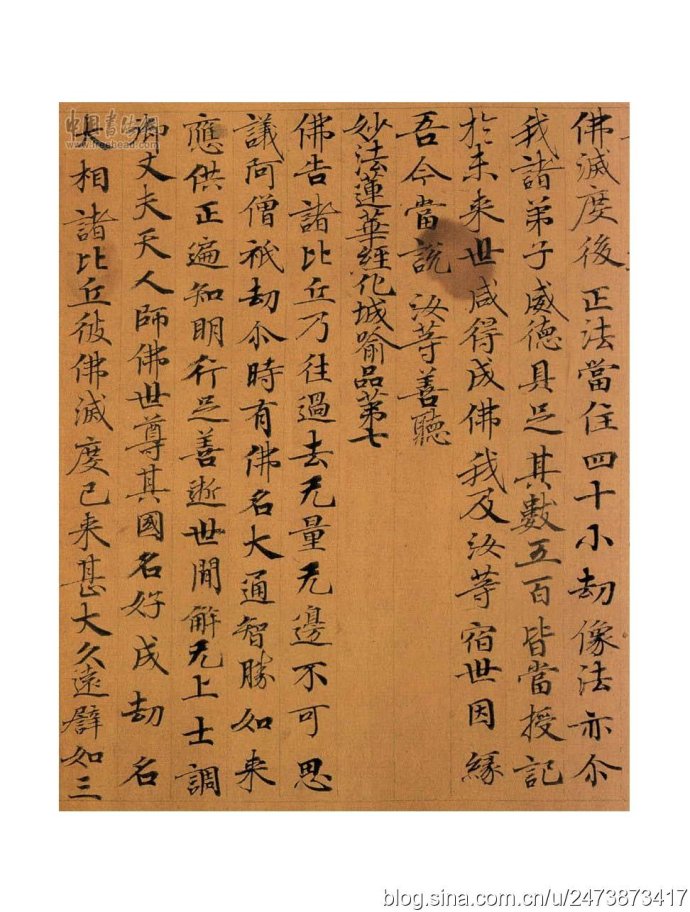 佛滅度後正法當住四十小劫像法亦尒
我諸弟子威德具足其數五百皆當授記
於未来世咸得成佛我及汝等宿世因緣
吾今當說汝等善聽
妙法蓮華經化城喻品第七
佛告諸比丘乃往過去无量无邊不可思
議阿僧祇劫尒時有佛名大通智勝如来
應供正遍知明行足善逝世間解无上士調
御丈夫天人師佛世尊其國名好成劫名
大相諸比丘彼佛滅度已来甚大久遠譬如三
中国书法网
blog.sina.com.cn/u/2473873417